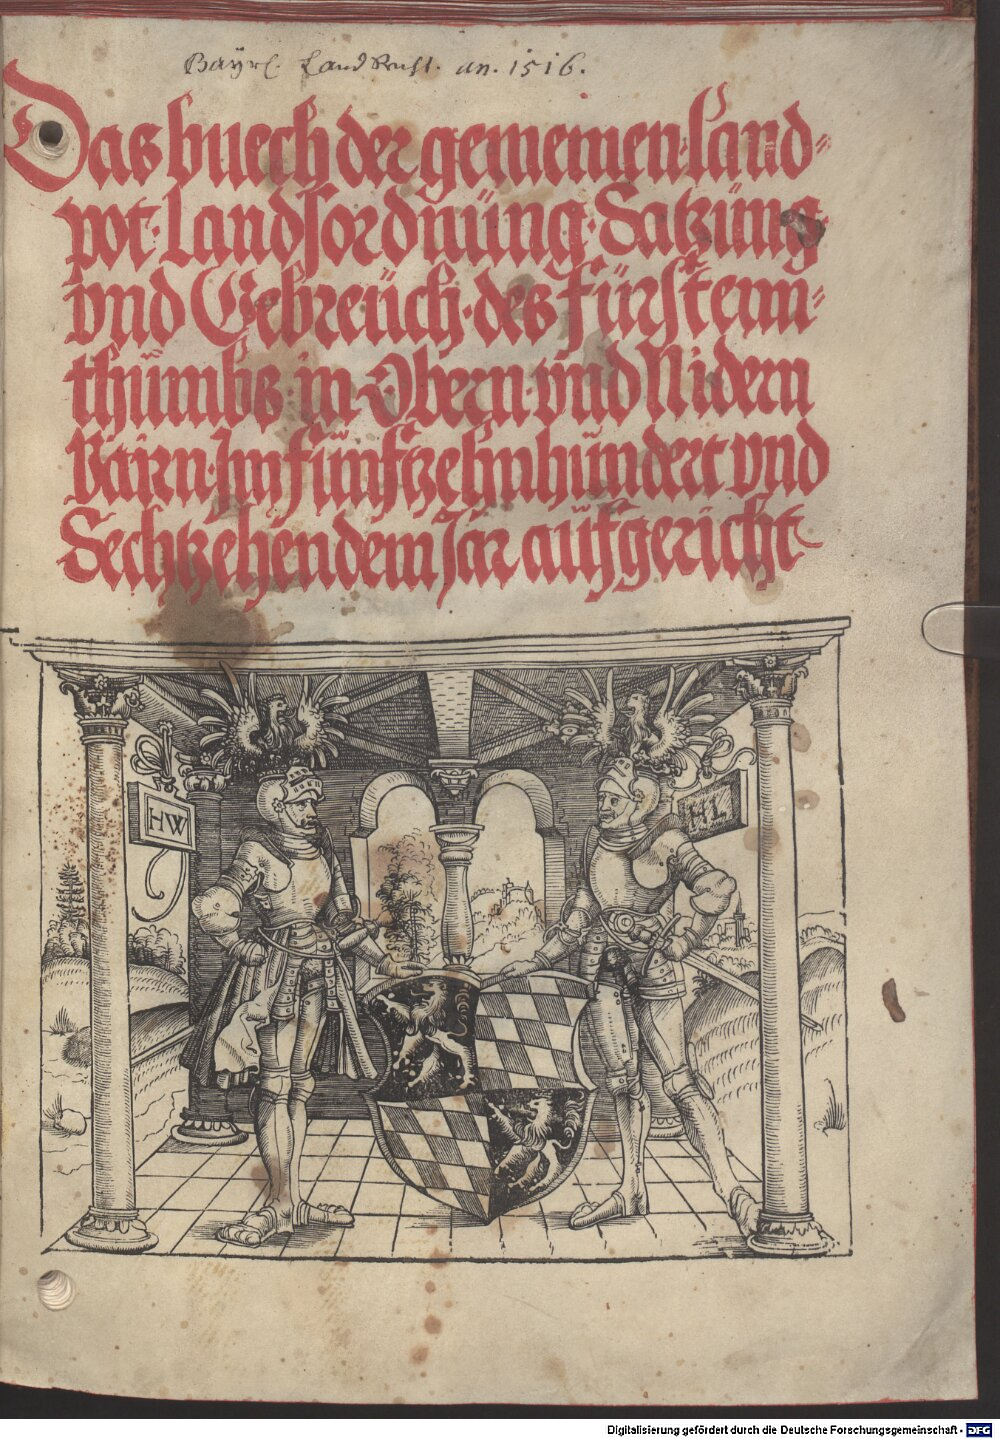 Bayrl. LandRecht. an. 1516.
Das buech der gemeinen land-
pot. Landsordnüng. Satzüng
vnd Gebreüch. des Fürstenn-
thümbs in Obern vnd Nidern
Bairn. Im Fünftzehnhündert vnd
Sechtzehendem Jar aufgericht
HW
HL
Digitalisierung gefördert durch die Deutsche Forschungsgemeinschaft - DFG